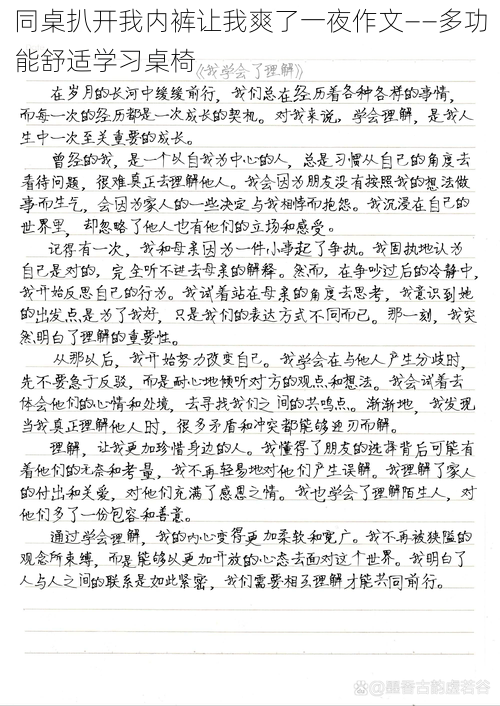 能舒适学习桌椅
《我学会了理解》
在岁月的长河中缓缓前行，我们总在经历着各种各样的事情，
而每一次的经历都是一次成长的契机。对我来说，学会理解，是我人
生中一次至关重要的成长。
曾经的我，是一个以自我为中心的人，总是习惯从自己的角度去
看待问题，很难真正去理解他人。我会因为朋友没有按照我的想法做
事而生气，会因为家人的一些决定与我相悖而抱怨。我沉浸在自己的
世界里，却忽略了他人也有他们的立场和感受。
记得有一次，我和母亲因为一件小事起了争执。我固执地认为
自己是对的，完全听不进去母亲的解释。然而，在争吵过后的冷静中，
我开始反思自己的行为。我试着站在母亲的角度去思考，我意识到她
的出发点是为了我好，只是我们的表达方式不同而已。那一刻，我突
然明白了理解的重要性。
从那以后，我开始努力改变自己。我学会在与他人产生分歧时，
先不要急于反驳，而是耐心地倾听对方的观点和想法。我会试着去
体会他们的心情和处境，去寻找我们之间的共鸣点。渐渐地，我发现
当我真正理解他人时，很多矛盾和冲突都能够迎刃而解。
理解，让我更加珍惜身边的人。我懂得了朋友的选择背后可能有
着他们的无奈和考量，我不再轻易地对他们产生误解。我理解了家人
的付出和关爱，对他们充满了感恩之情。我也学会了理解陌生人，对
他们多了一份包容和善意。
通过学会理解，我的内心变得更加柔软和宽广。我不再被狭隘的
观念所束缚，而是能够以更加开放的心态去面对这个世界。我明白了
人与人之间的联系是如此紧密，我们需要相互理解才能共同前行。